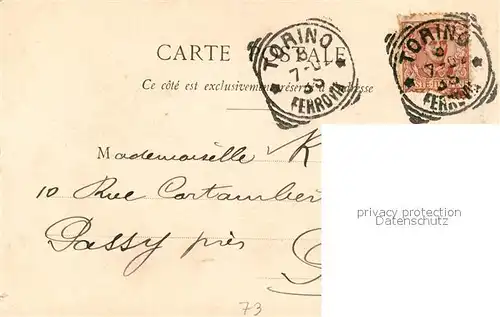 CARTE POSTALE
Ce côté est exclusivement réservé à l'adresse
TORINO
FERROVIA
TORINO
FERROVIA
Mademoiselle K
10 Rue Cortambert
Passy près
privacy protection
Datenschutz
73